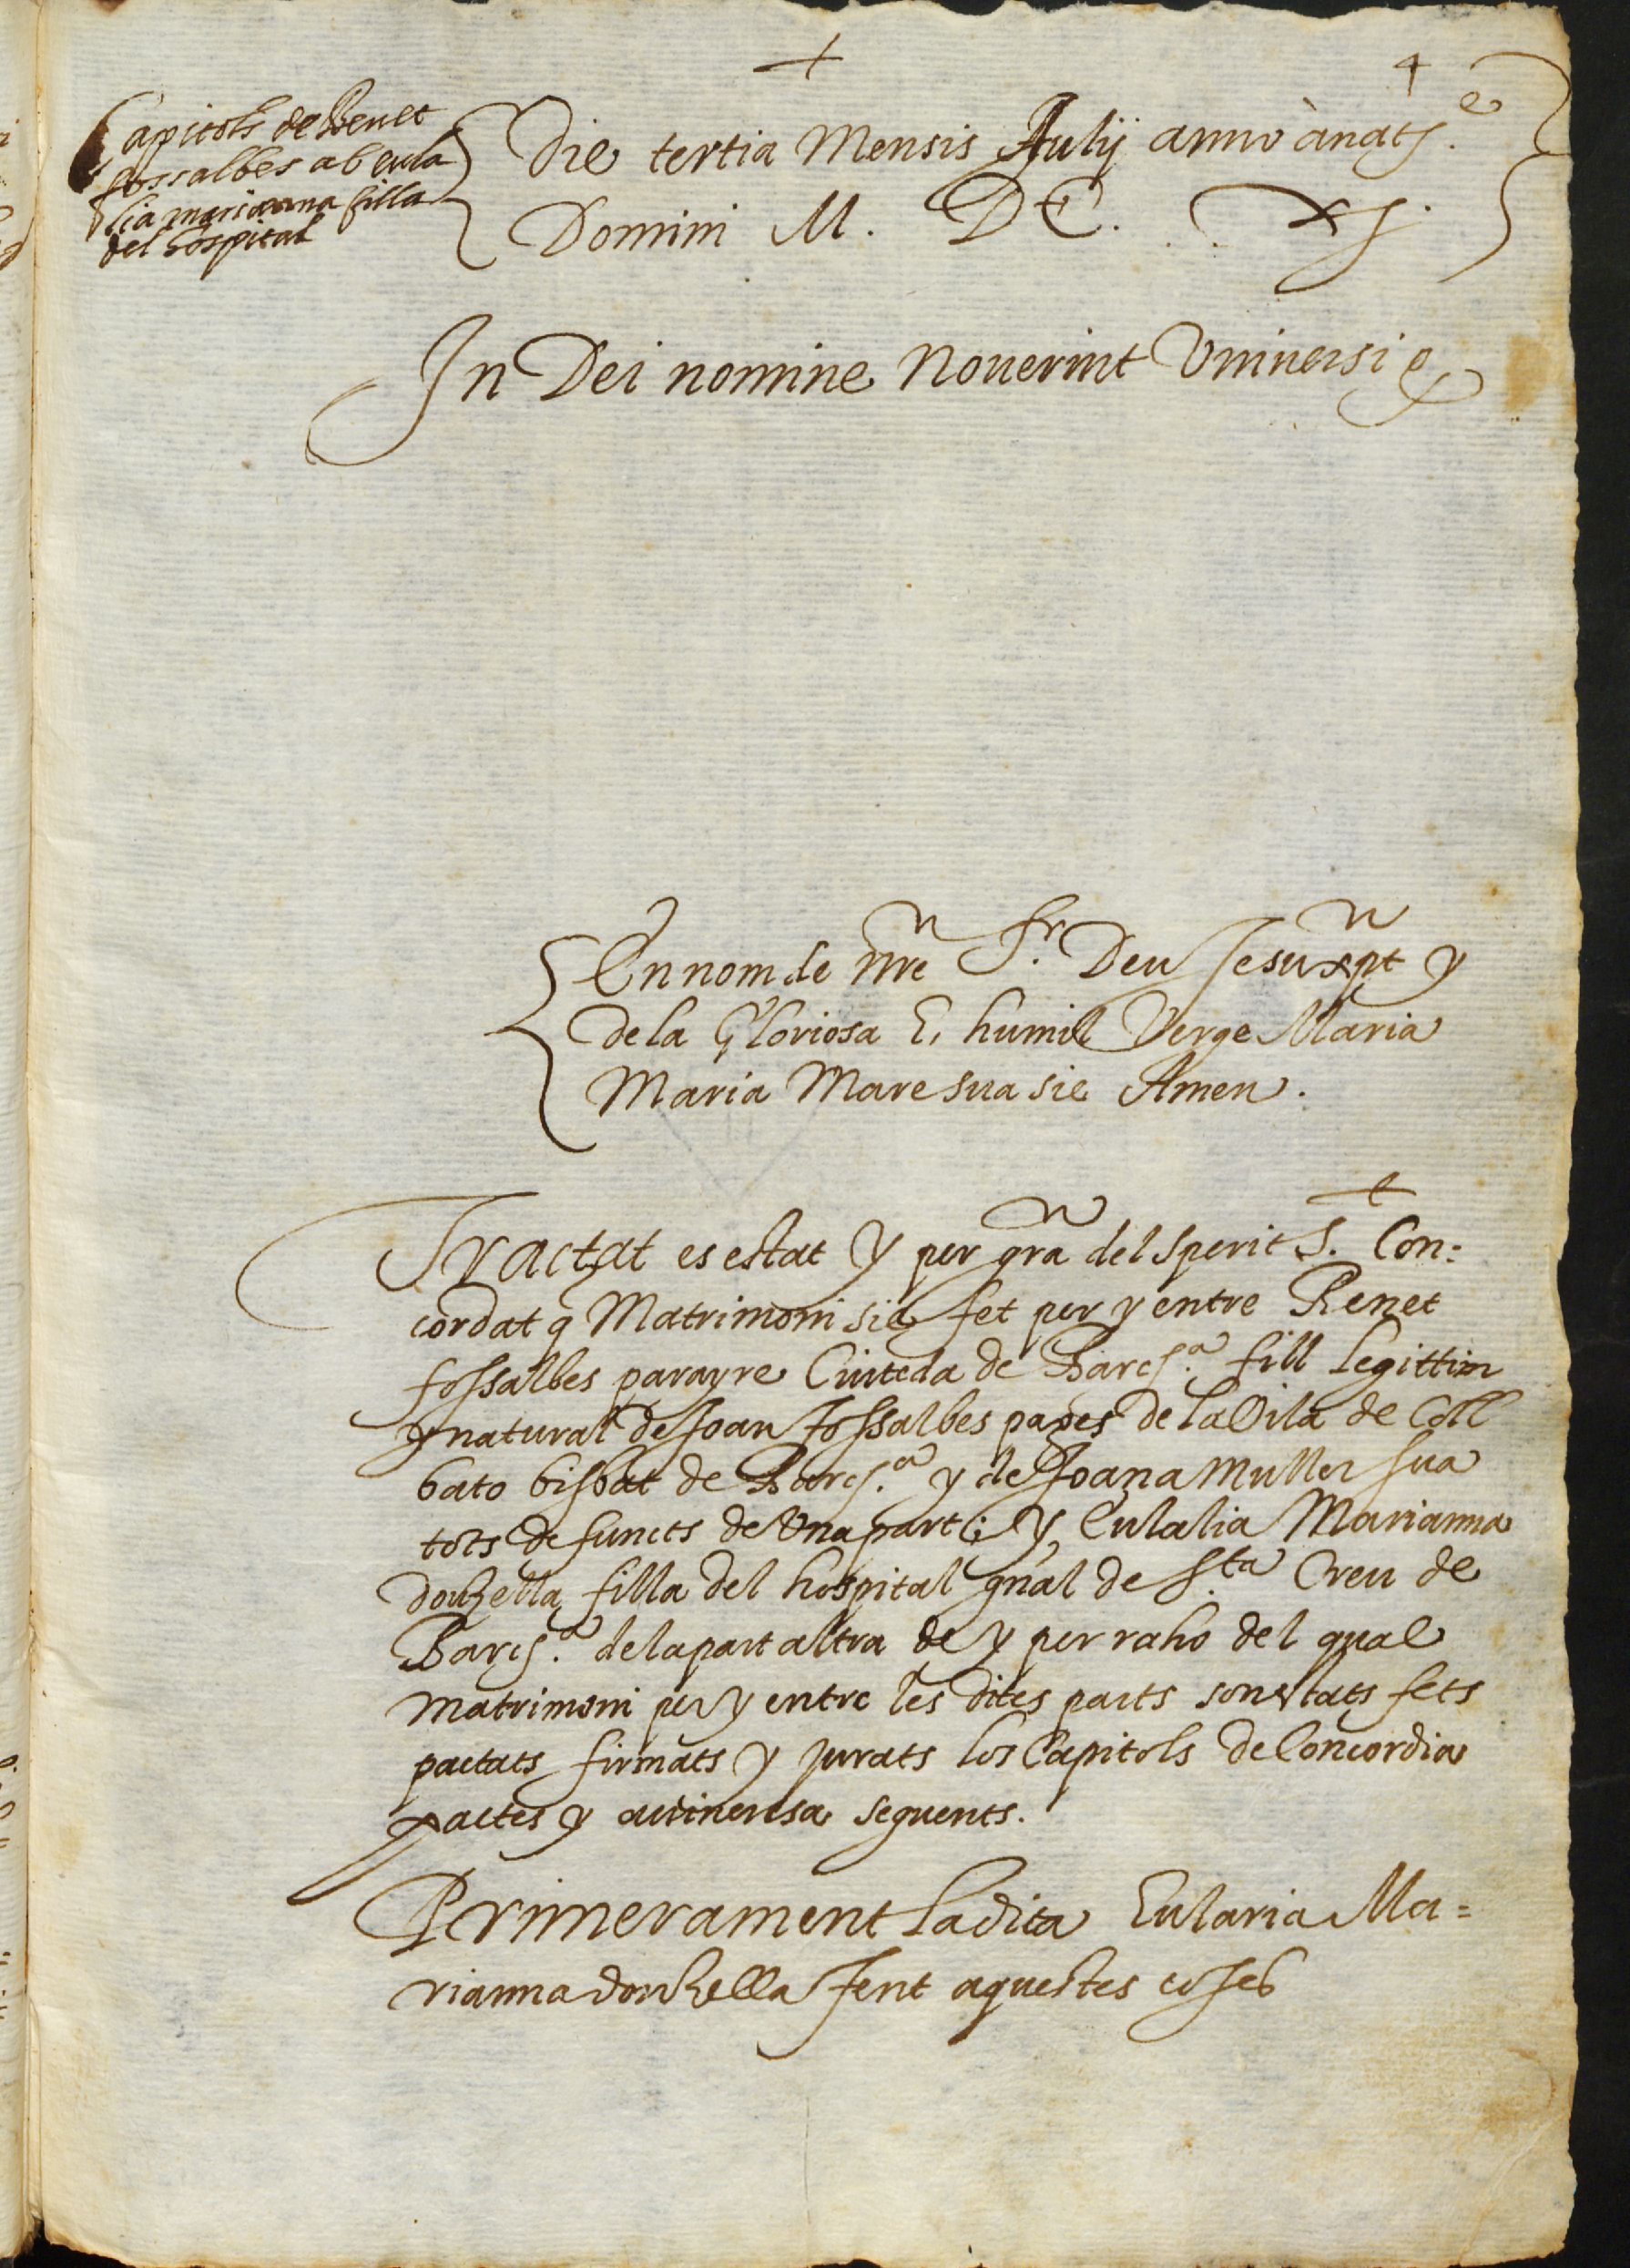 Capitols de Benet
fossalbes ab eula
lia marianna filla
del hospital
Die tertia Mensis Julij anno ànatj.e
Domini M. DC. . . xj.
In Dei nomine Noverint Universi &
En nom de nre Sr. Deu Jesuxpt y
de la Gloriosa E, humil Verge Maria
Maria Mare sua sie Amen.
Tractat es estat y per gra del Sperit S.t Con:
cordat q Matrimoni sie fet per y entre Benet
fossalbes parayre Ciuteda de Barcj.a fill legittim
y natural de Joan fossalbes pages de la Vila de Coll
bato bisbat de Barcj.a y de Joana Muller sua
tots defuncts de Una part; y, Eulalia Marianna
donzella filla del hospital gnal de S.ta Creu de
Barcj.a de la part altra de y per raho del qual
Matrimoni per y entre les dites parts son estats fets
pactats firmats y jurats los Capitols de Concordia
pactes y avinensa seguents.
Primerament la dita Eularia Ma=
rianna donzella fent aquestes coses